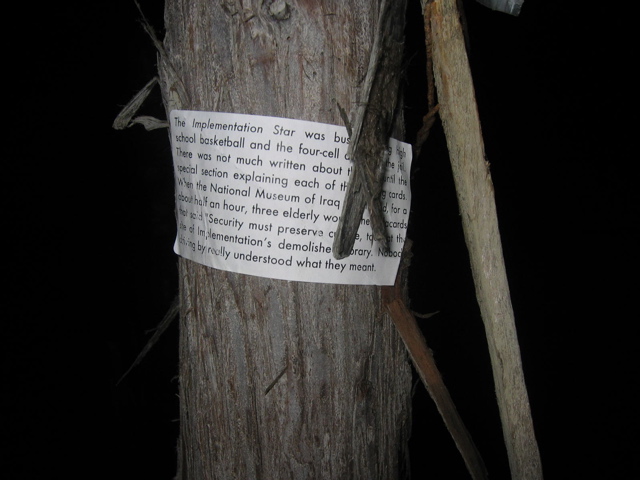 The Implementation Star was high
school basketball and the four-cell
There was not much written about until the
special section explaining each of cards.
When the National Museum of Iraq for a
about half an hour, three elderly placards
that said "Security must preserve the
site of Implementation's demolished library. Nobody
driving by really understood what they meant.